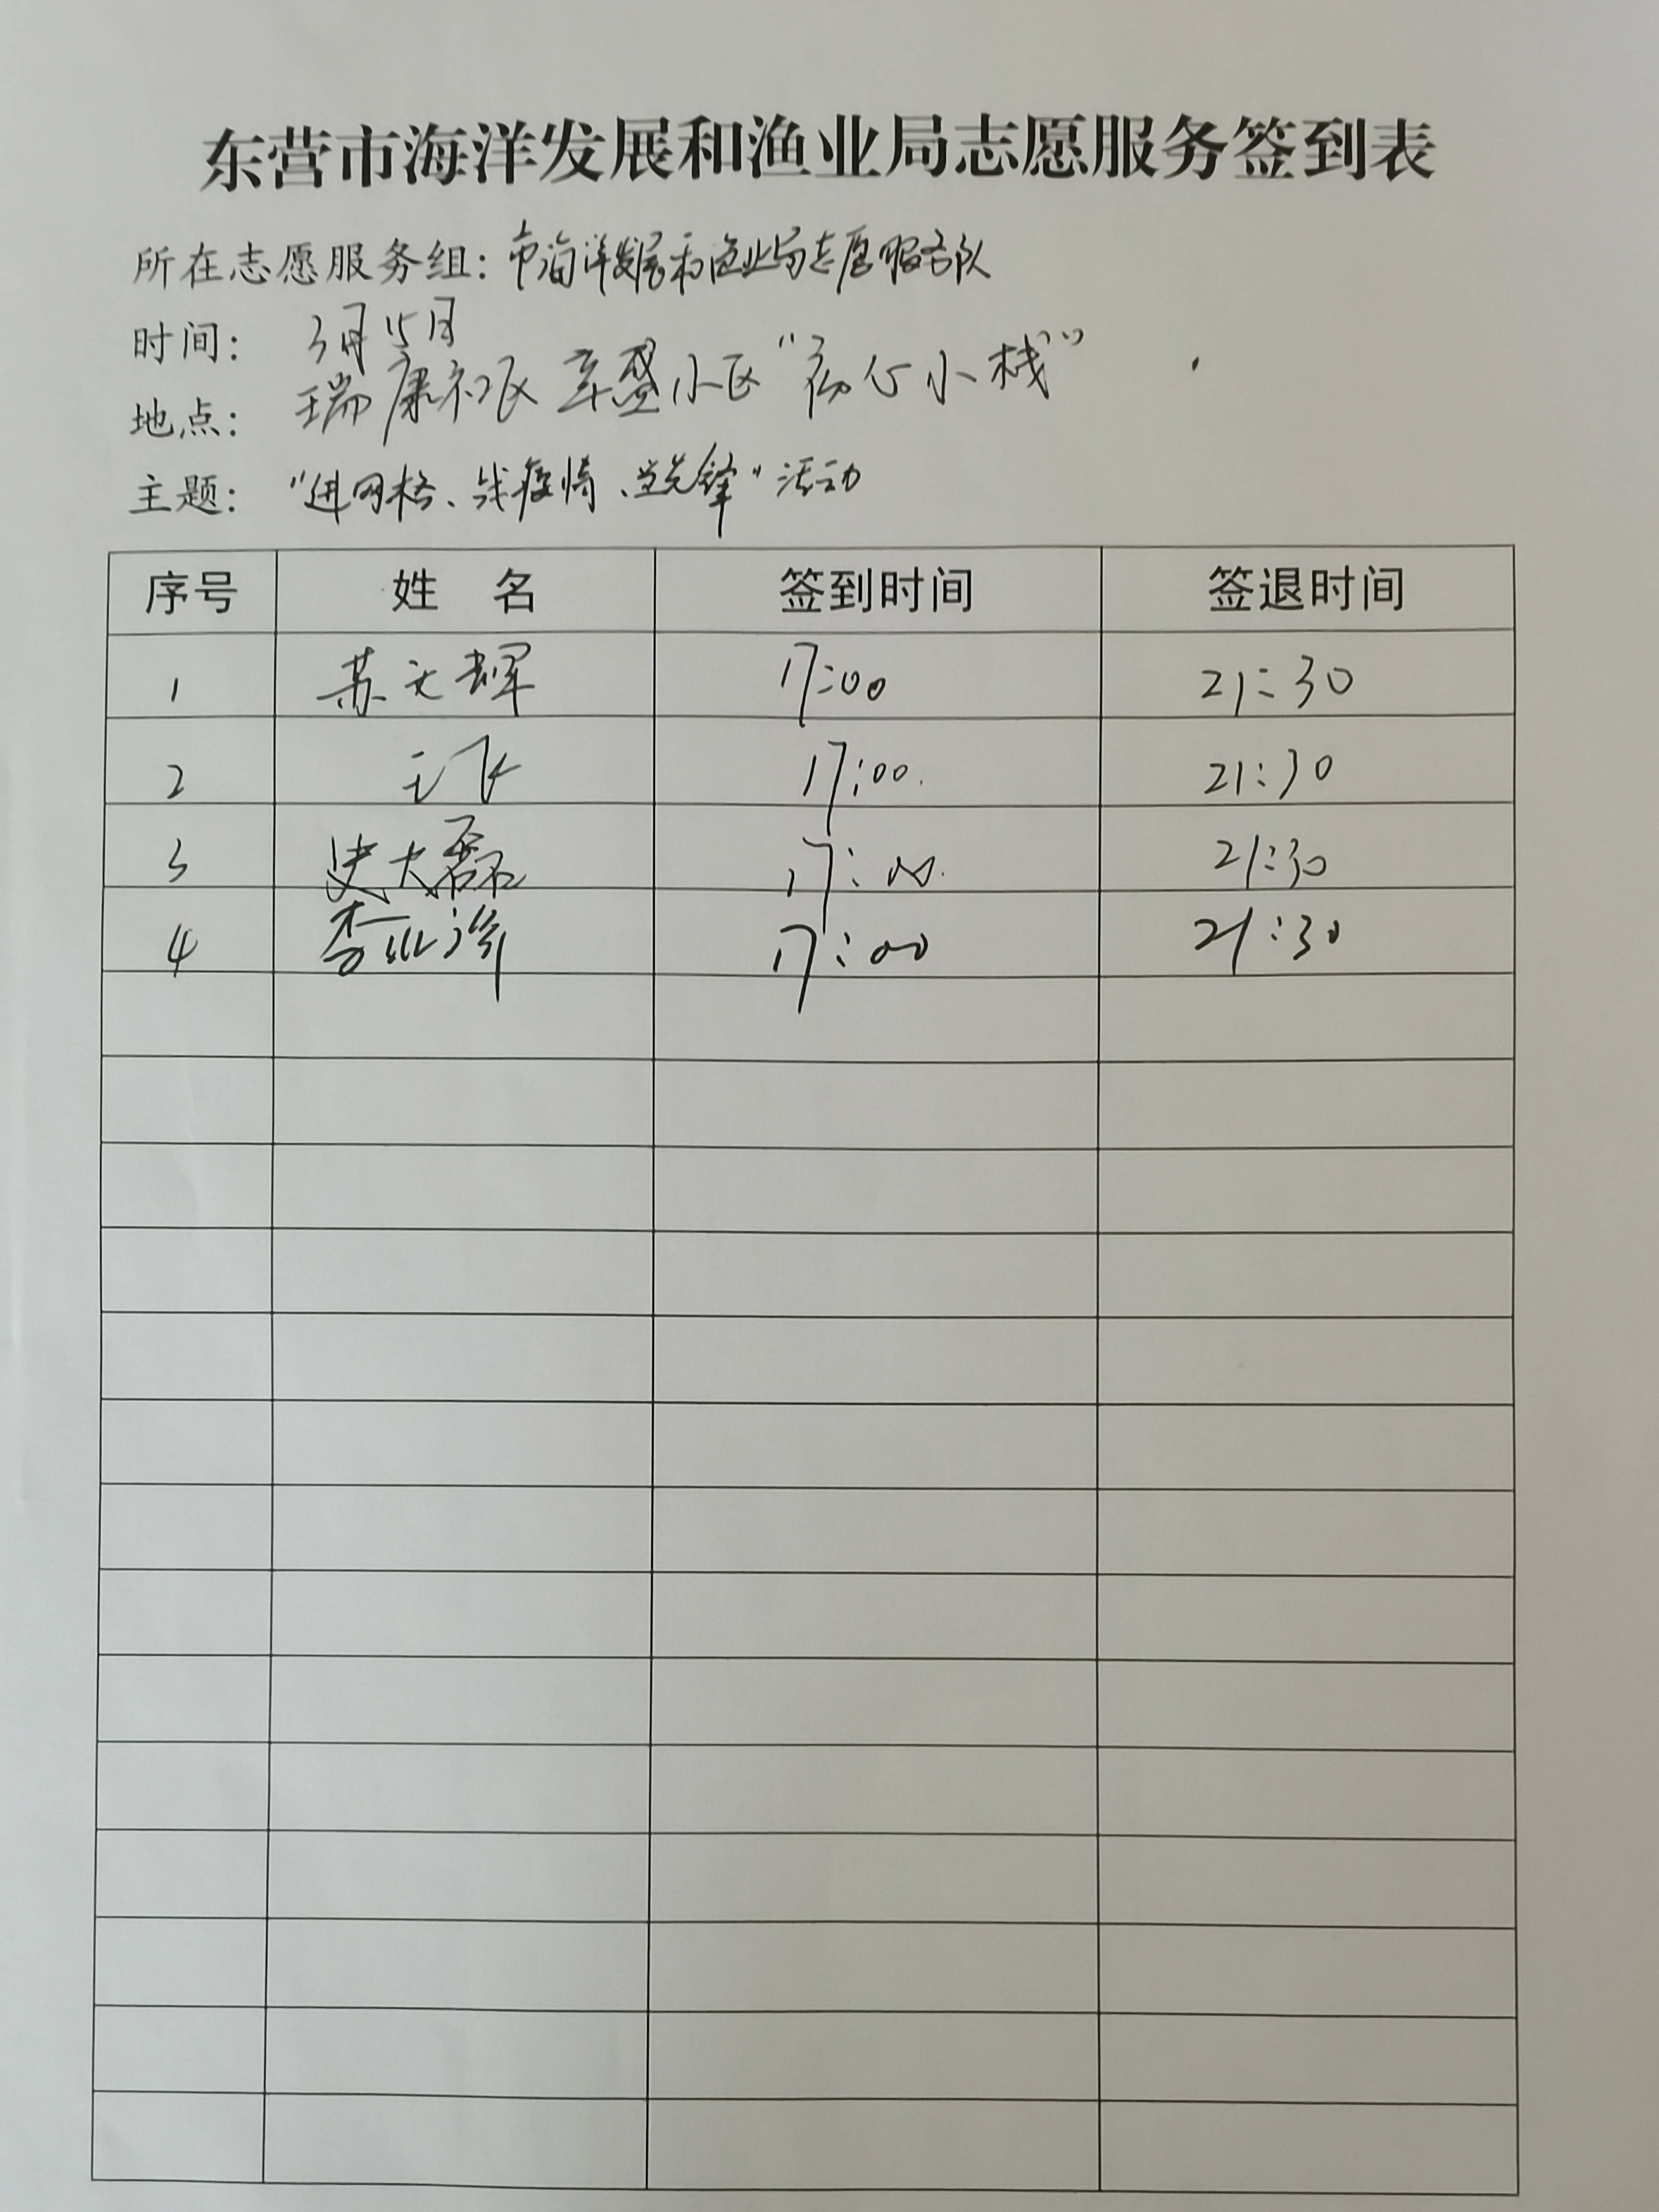 东营市海洋发展和渔业局志愿服务签到表
所在志愿服务组: 市海洋发展和渔业局志愿服务队
时间: 3月15日
地点: 瑞康社区 小区"初心小栈"
主题: "进网格、战疫情、当先锋"活动
序号 姓 名 签到时间 签退时间
1 苏文辉 17:00 21:30
2 王飞 17:00. 21:30
3 史大磊 17:00. 21:30
4 李 17:00 21:30